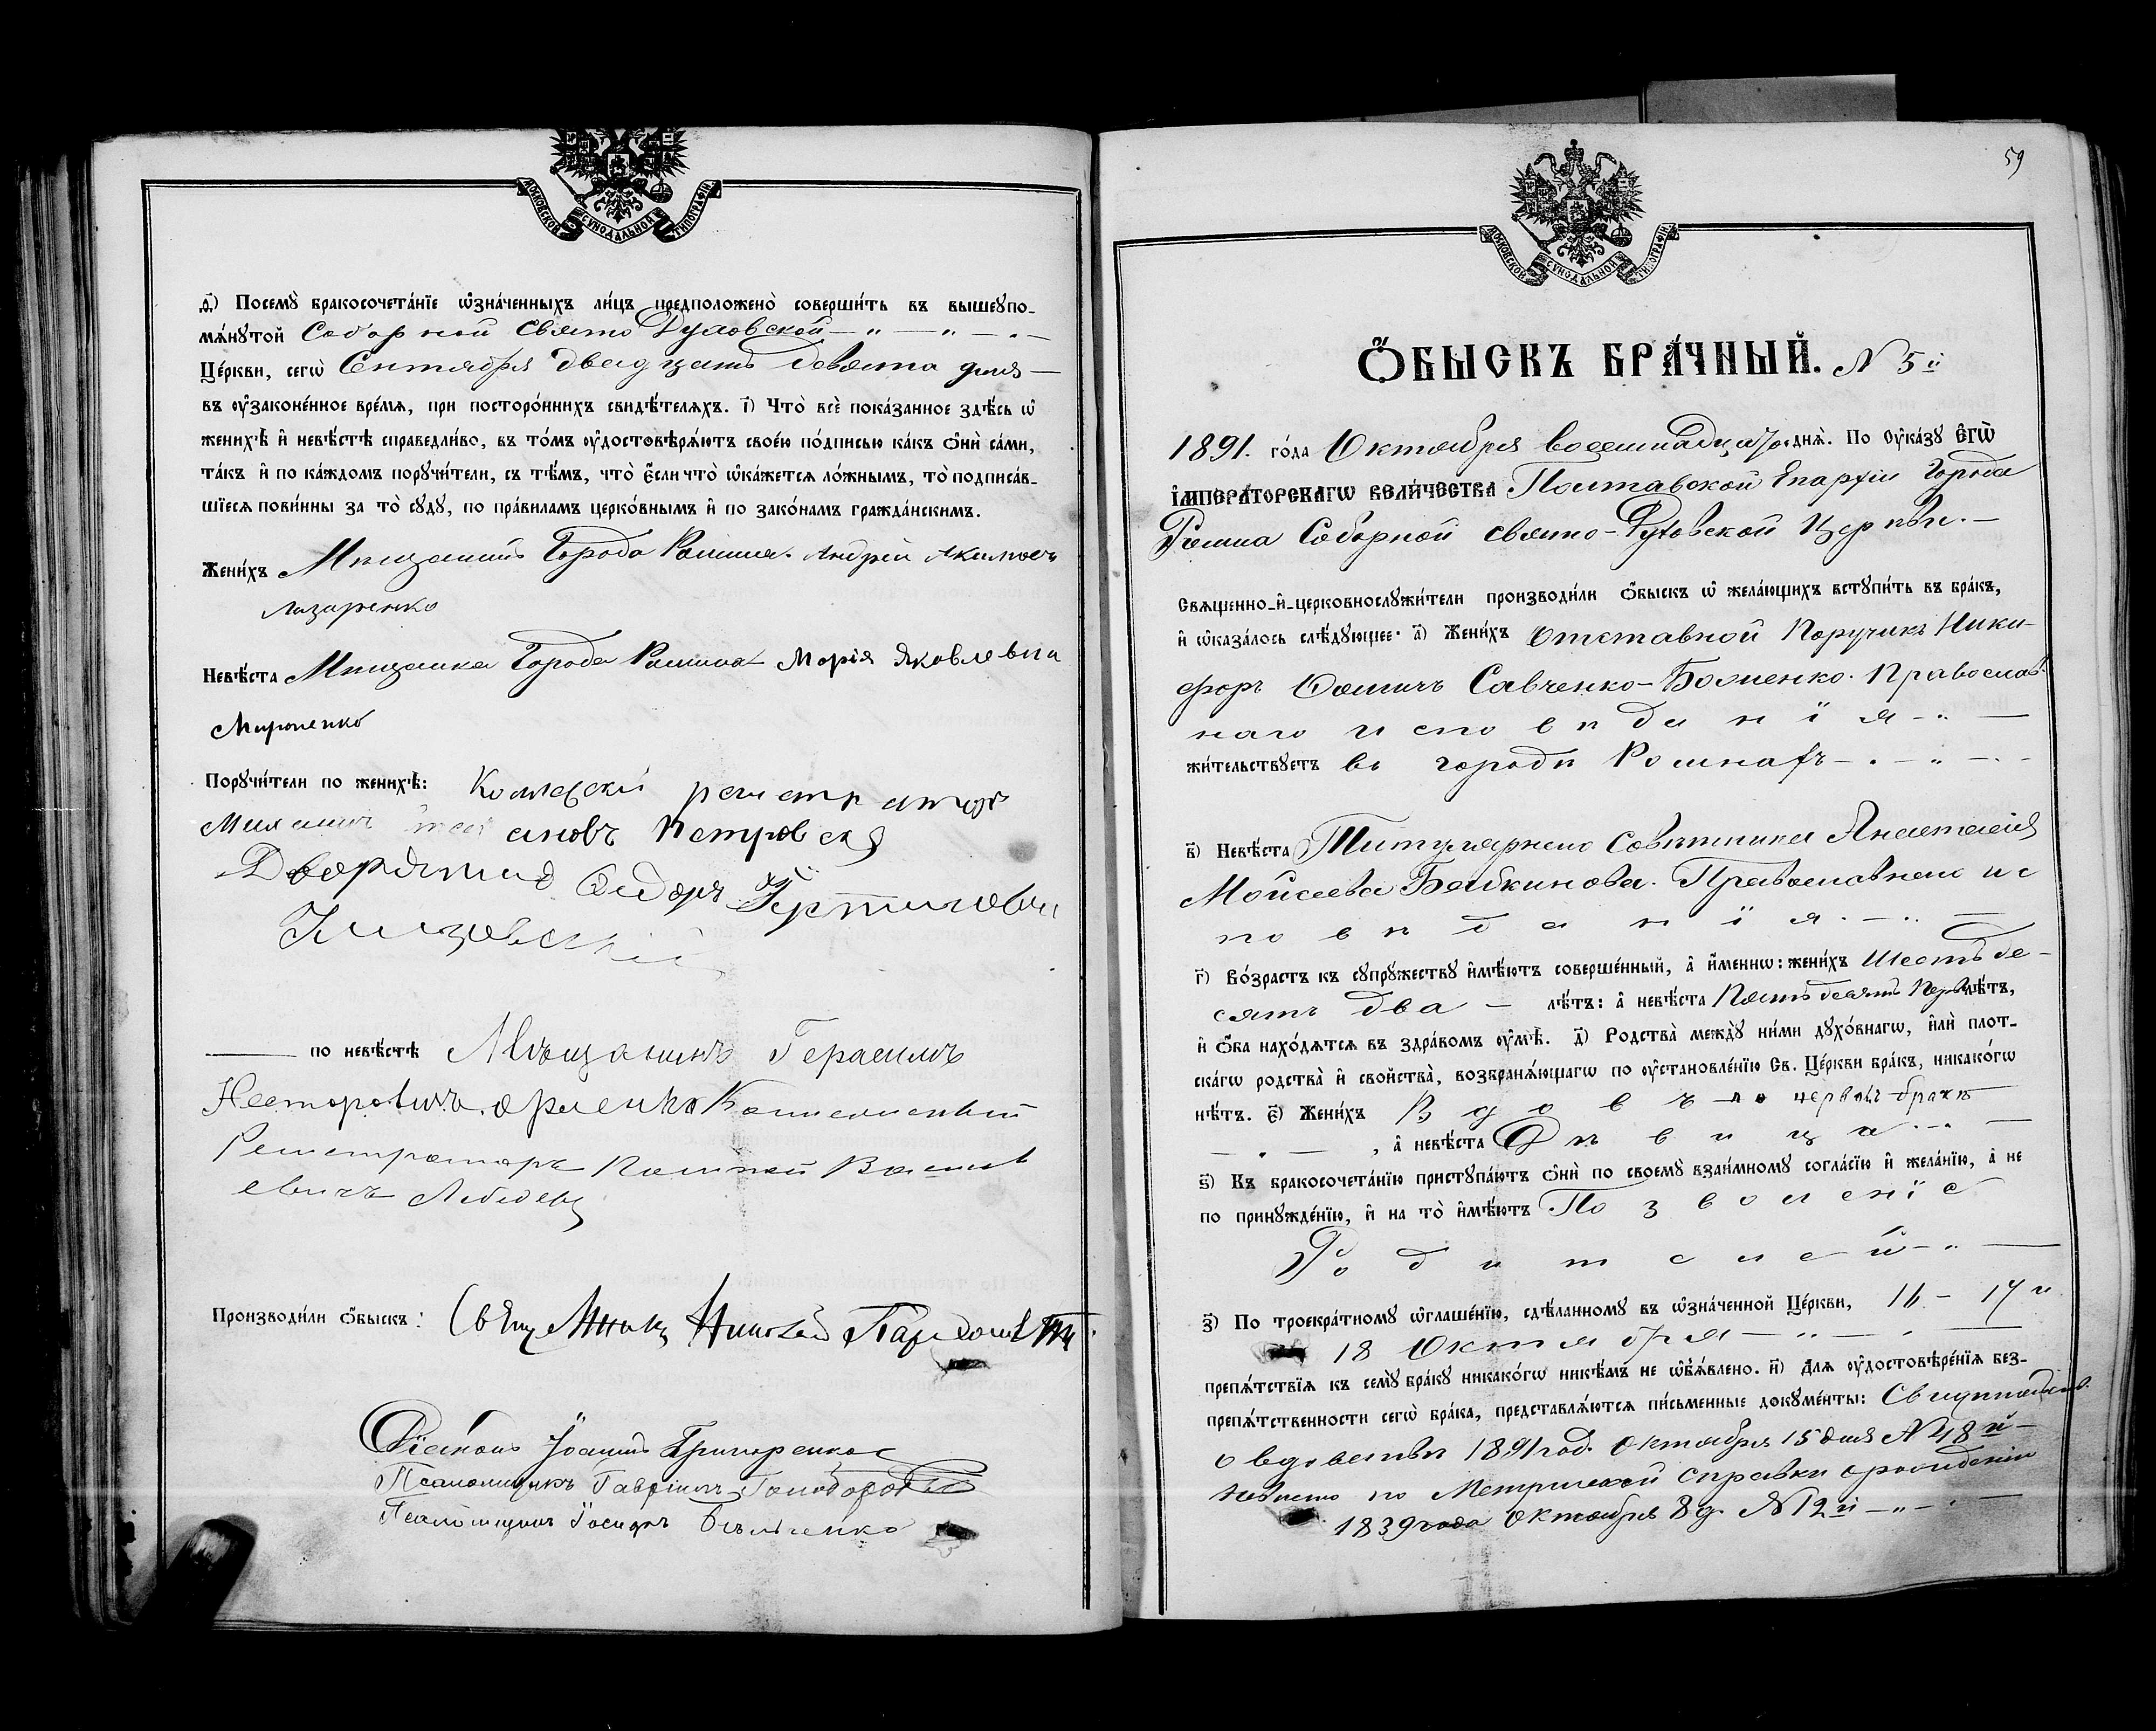 МОСКОВСКОЙ СУНОДАЛЬНОЙ ТИПОГРАФІИ
д҃і) Посемꙋ̀ бракосочета́нїе ѡ҆зна́ченныхъ ли́цъ предположено̀ соверши́ть въ вышеꙋпо-
мѧ́нꙋтой Соборной Свято Духовской
Це́ркви, сегѡ̀ Сентября двадцать девята дня
въ ᲂу҆законе́нное вре́мѧ, при посторо́ннихъ свидѣ́телѧхъ. і҃) Что̀ всѐ пока́занное здѣ́сь ѡ҆
женихѣ̀ и҆ невѣ́стѣ справедли́во, въ то́мъ ᲂу҆достовѣрѧ́ютъ свое́ю по́дписью ка́къ ѻ҆нѝ са́ми,
та́къ и҆ по ка́ждомъ порꙋчи́тели, съ тѣ́мъ, что̀ є҆́сли что̀ ѡ҆ка́жетсѧ ло́жнымъ, то̀ подписа́в-
шїесѧ пови́нны за то̀ сꙋдꙋ̀, по пра́виламъ церко́внымъ и҆ по зако́намъ гражда́нскимъ.
Жени́хъ Мещанинъ Города Ромна Андрей Акимовъ
Лазаренко
Невѣ́ста Мещанка Города Ромна Марія Яковлевна
Мироненко
Порꙋчи́тели по женихѣ̀: Коллежскій регистраторъ
Михаилъ Петровскій
Дворянинъ Федоръ
по невѣ́стѣ Мѣщанинъ Герасимъ
Несторовичъ Коллежскій
Регистраторъ Василь
евичъ Лебедец
Производи́ли ѻ҆́быскъ: Свящ Николай
Діаконъ Іоаннъ Григоренко
Псаломщикъ Гавріилъ
Псаломщикъ Іосифъ
59
МОСКОВСКОЙ СУНОДАЛЬНОЙ ТИПОГРАФІИ
Ѻ҆́БЫСКЪ БРА́ЧНЫЙ. N 5й
1891. го́да Октября восемнадцато днѧ̀. По Оу҆ка́зꙋ Є҆гѡ̀
І҆МПЕРА́ТОРСКАГѠ ВЕЛИ́ЧЕСТВА Полтавской Епархіи Города
Ромна Соборной свято-Духовской Церкви.
Свѧще́нно-и҆-церковнослꙋжи́тели производи́ли ѻ҆́быскъ ѡ҆ жела́ющихъ встꙋпи́ть въ бра́къ,
и҆ ѡ҆каза́лось слѣ́дꙋющее: а҃) Жени́хъ Отставной Поручикъ Ники-
форъ Фомичъ Савченко-Боженко. Православ
наго исповеданія
жи́тельствꙋетъ въ городе Ромнахъ
в҃) Невѣ́ста Титулярнаго Советника Анастасія
Моисеева Бабкинова. Православнаго ис
поведанія
г҃) Во́зрастъ къ сꙋпрꙋ́жествꙋ и҆мѣ́ютъ соверше́нный, а҆ и҆́меннѡ: жени́хъ Шестьде-
сятъ два лѣ́тъ: а҆ невѣ́ста Пятьдесятъ Первъ лѣ́тъ,
и҆ ѻ҆́ба нахо́дѧтсѧ въ здра́вомъ ᲂу҆мѣ̀. д҃) Родства̀ междꙋ̀ ни́ми дꙋхо́внагѡ, и҆лѝ плот-
ска́гѡ родства̀ и҆ сво́йства̀, возбранѧ́ющагѡ по ᲂу҆становле́нїю Св. Це́ркви бра́къ, никако́гѡ
нѣ́тъ. є҃) Жени́хъ Вдовъ по первымъ бракѣ
, а҆ невѣ́ста Девица
ѕ҃) Къ бракосочета́нїю пристꙋпа́ютъ ѻ҆нѝ по своемꙋ̀ взаи́мномꙋ согла́сїю и҆ жела́нїю, а҆ не
по принꙋжде́нїю, и҆ на то̀ и҆мѣ́ютъ Позволеніе
Родителей
з҃) По троекра́тномꙋ ѡ҆глаше́нїю, сдѣ́ланномꙋ въ ѡ҆зна́ченной Це́ркви, 16 - 17 и
18 Октября
препѧ́тствїѧ къ семꙋ̀ бра́кꙋ никако́гѡ никѣ́мъ не ѡ҆б̾ѧ́влено. и҃) Длѧ ᲂу҆достовѣре́нїѧ без-
препѧ́тственности сегѡ̀ бра́ка, представлѧ́ютсѧ пи́сьменные докꙋме́нты: Свидетель.
о вдовстве 1891 год. Октября 15 дня N 48й
Невесто по Метрической справки о рождении
1839 года Октября 8 д. N 12й